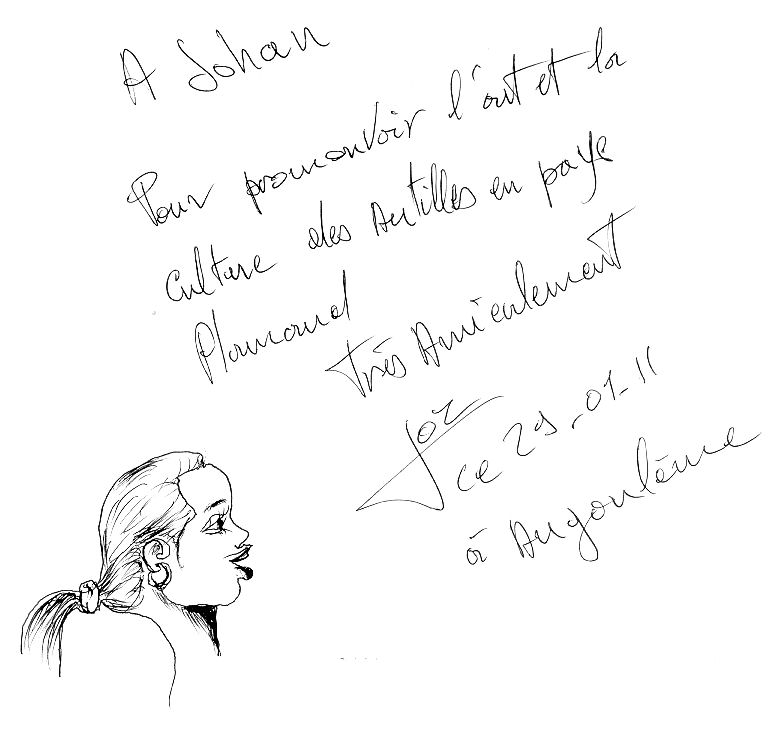 A Johan
Pour promouvoir l'art et la
culture des Antilles en paye
Flamand
Très Amicalement
ce 29-01-11
à Angoulême